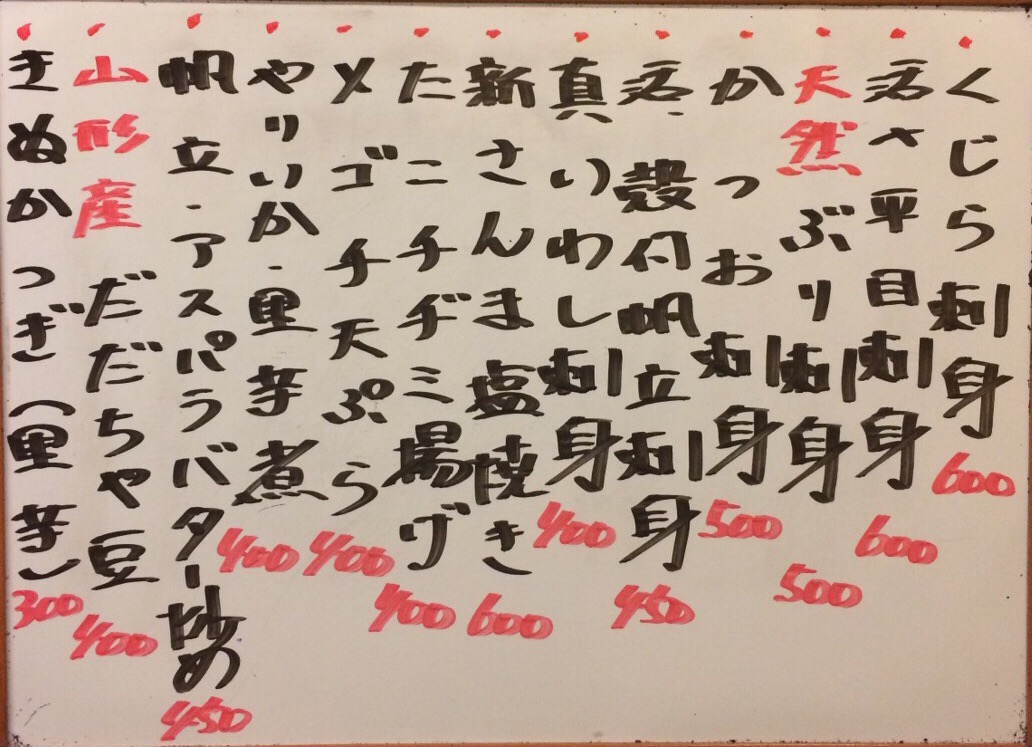 くじら刺身 600
活〆平目刺身 600
天然ぶり刺身 500
かつお刺身 500
活殻付帆立刺身 450
真いわし刺身 400
新さんま塩焼き 600
たこチヂミ揚げ 400
メゴチ天ぷら 400
やりいか・里芋煮 400
帆立・アスパラバター炒め 450
山形産だだちゃ豆 400
きぬかつぎ(里芋) 300